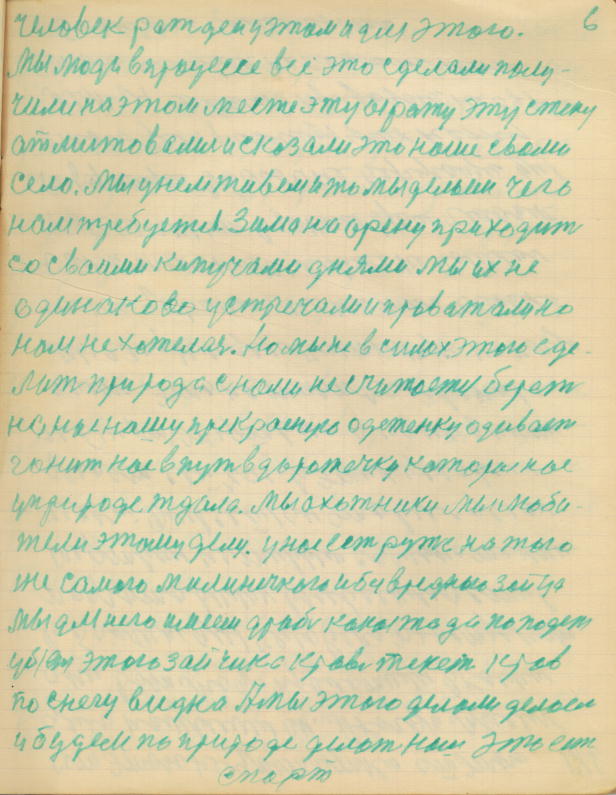 6
человек ражден у этом и для этого.
Мы люди в процессе всё это сделали полу-
чили на этом месте эту ограту эту стену
атлитовали и сказали это наше своми
село. Мы у нем живем и то мы делаем чего
нам требуется. Зима на арену приходит
со своими кипучами днями мы их не
одинаково устречали и проважали но
нам не хателая. Но мы не в силах этого сде-
лат природа с нами не считается берет
на нас нашу прекрасную одеженку одивает
гонит нас в пут в дарожечку катора нас
у природе ждала. Мы охотники мы люби-
тели этому делу. у нас ест руже на того
же самого малинечкого и бувредного зайца
мы для него имеем дроби кагда попадет
у этого зайчика кровь течет кров
по снегу видна А мы этого делали делаем
и будем по природе делат наш это ест
спарт